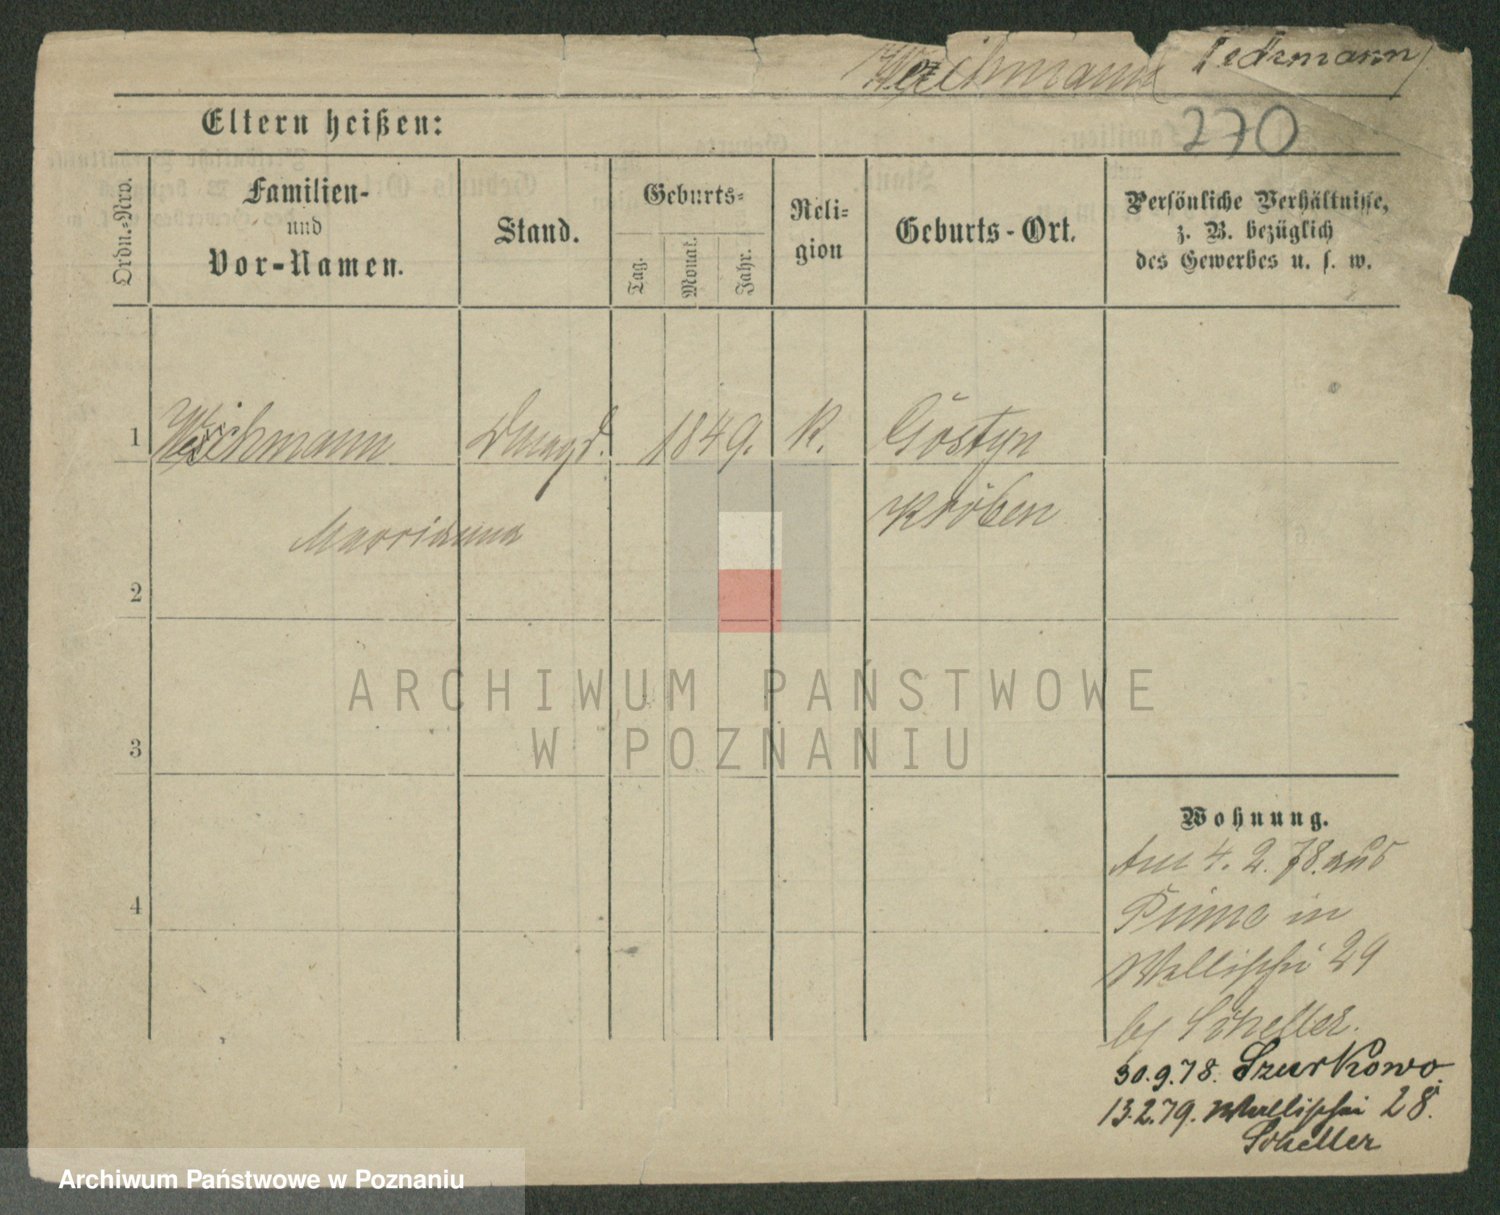 Weichmann Tedrmann
270
Eltern heißen:
Ordn.-Nro.
Familien-
und
Vor-Namen.
Stand.
Geburts-
Tag.
Monat.
Jahr.
Reli-
gion
Geburts-Ort.
Persönliche Verhältnisse,
z. B. bezüglich
des Gewerbes u. s. w.
1 Weichmann Dmagd. 1849. K. Gostyn
Kröben
Marrianna
2
ARCHIWUM PAŃSTWOWE
W POZNANIU
3
Wohnung.
Am 4.2.78. aus
in
4
Wallischei 29
by Scheller.
30.9.78. Szurkowo
13.2.79. Wallischei 28.
Scheller
Archiwum Państwowe w Poznaniu